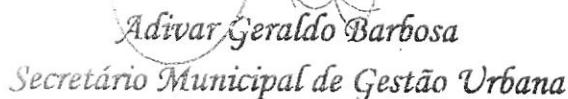 Adivar Geraldo Barbosa
Secretário Municipal de Gestão Urbana